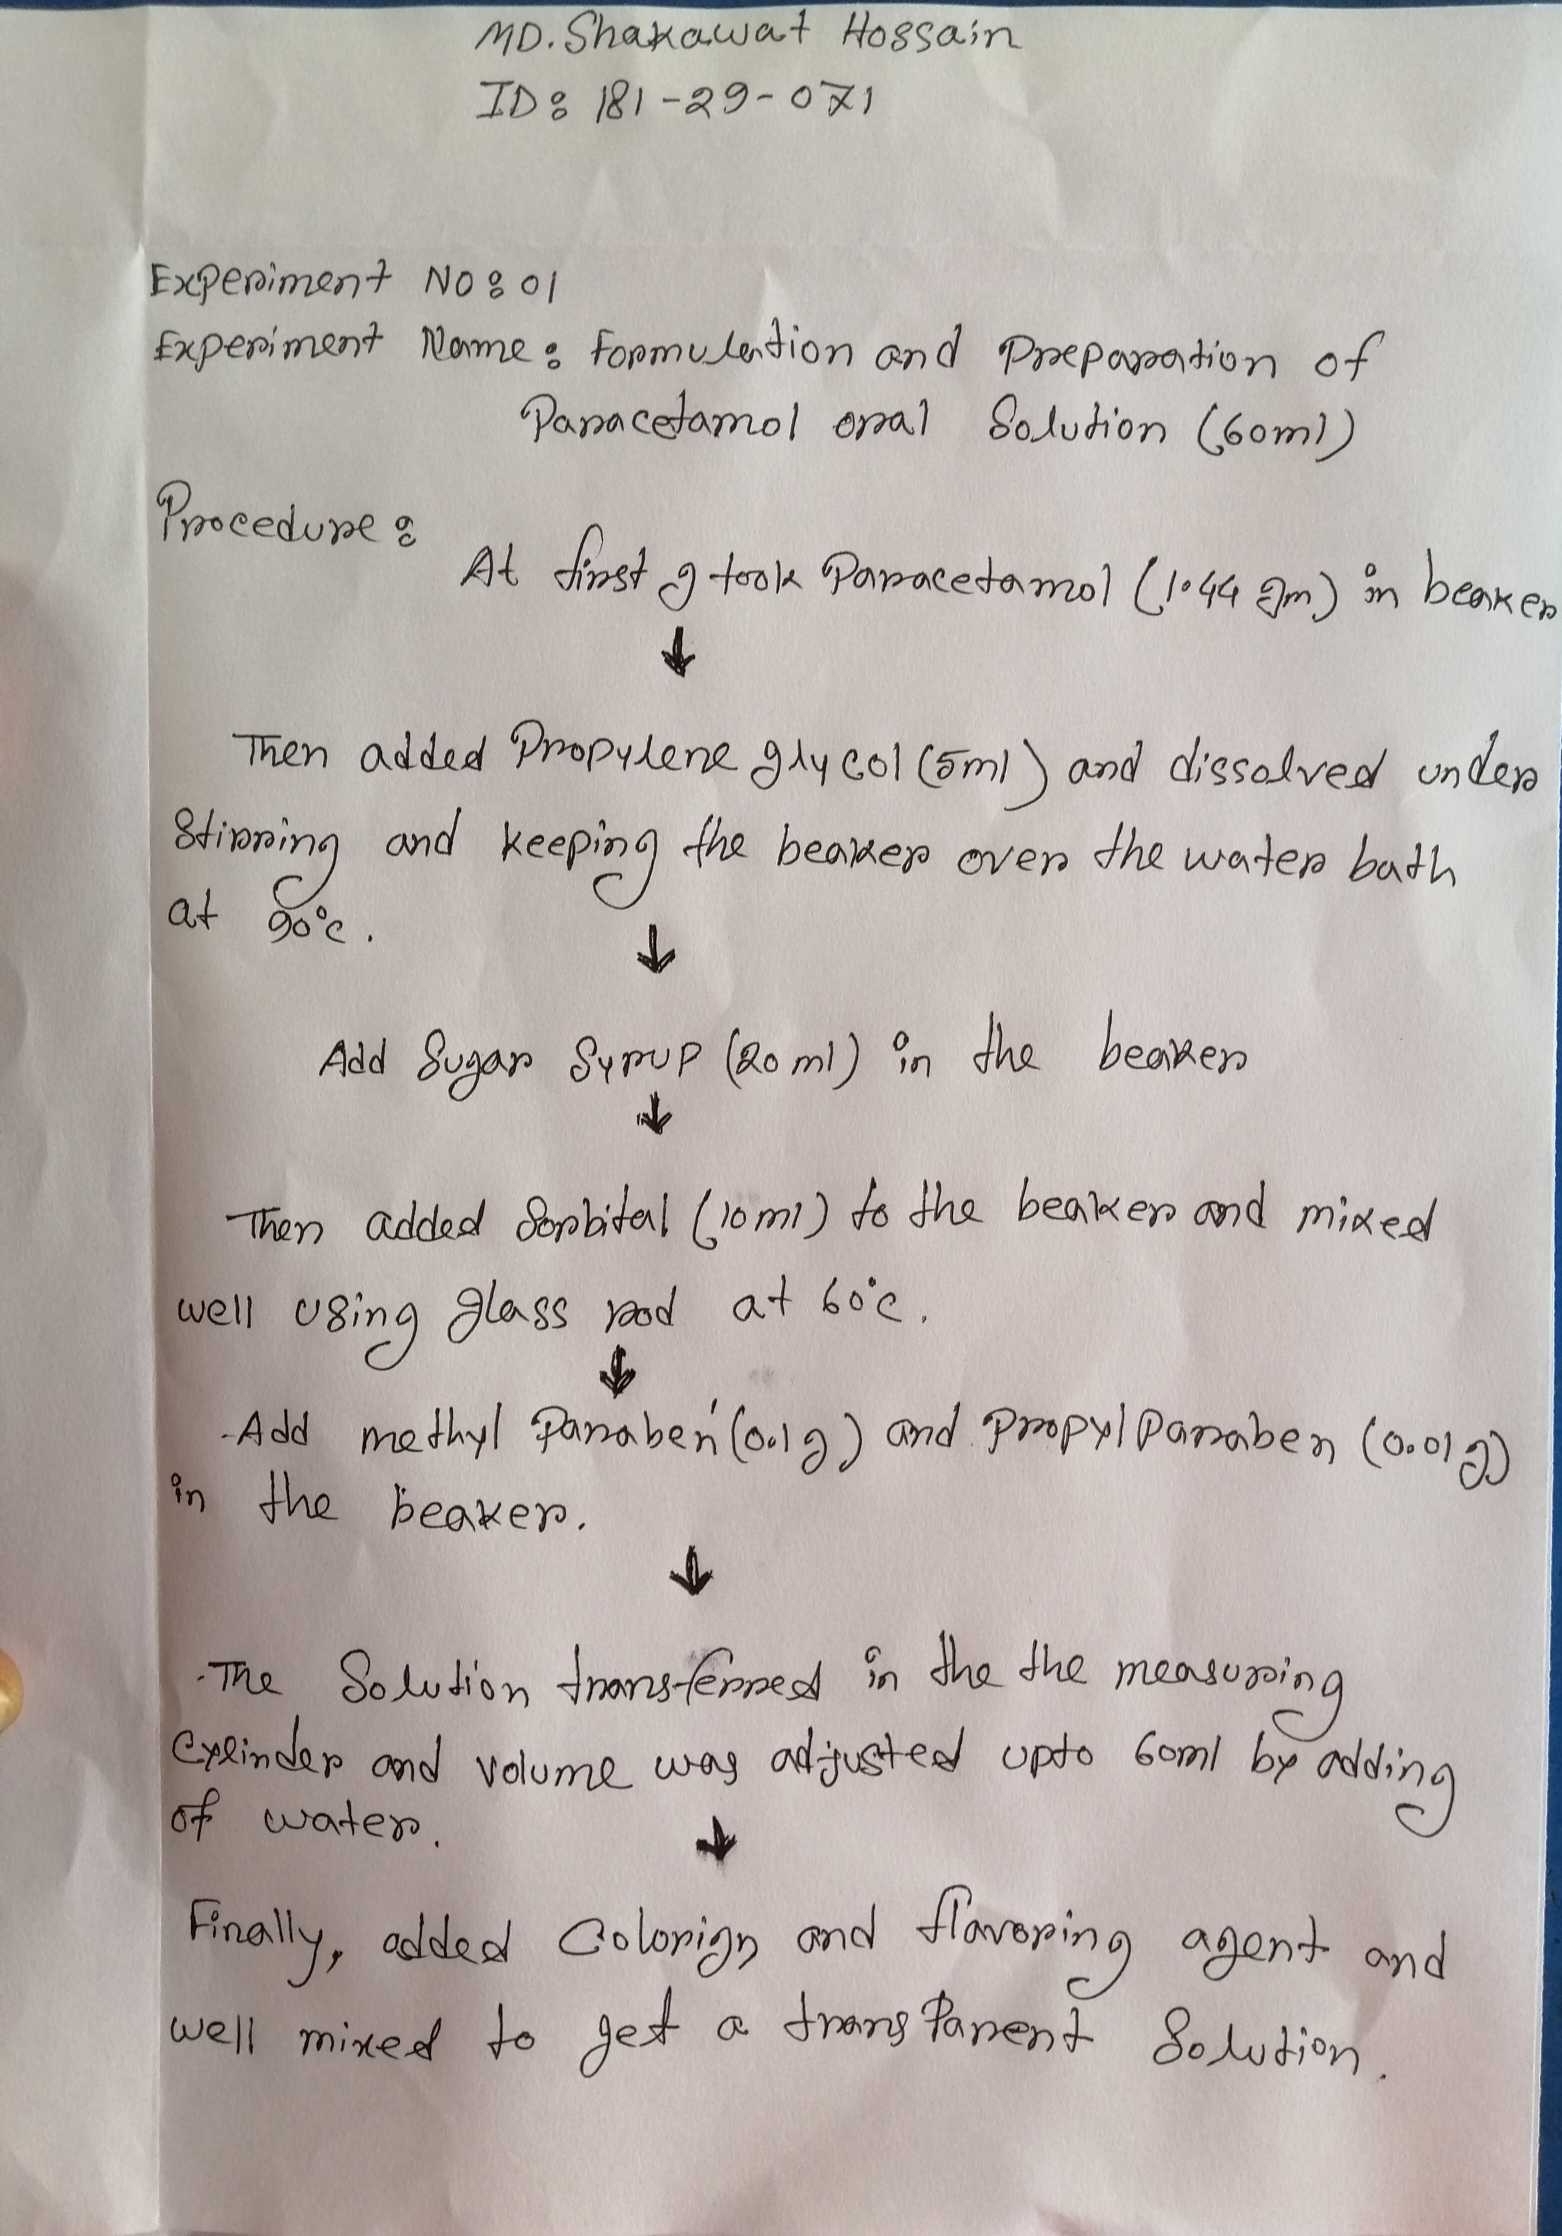 MD. Shakawat Hossain
ID: 181-29-071
Experiment No: 01
Experiment Name: Formulation and Preparation of
Paracetamol oral Solution (60ml)
Procedure:
At first I took Paracetamol (1.44 gm) in beaker
↓
Then added Propylene glycol (5ml) and dissolved under
Stirring and keeping the beaker over the water bath
at 90°c.
↓
Add Sugar Syrup (20 ml) in the beaker
↓
Then added Sorbital (10ml) to the beaker and mixed
well using glass rod at 60°c.
↓
Add methyl Paraben (0.1g) and Propyl Paraben (0.01g)
in the beaker.
↓
The Solution transferred in the the measuring
Cylinder and volume was adjusted upto 60ml by adding
of water.
↓
Finally, added Colorign and flavoring agent and
well mixed to get a transparent Solution.